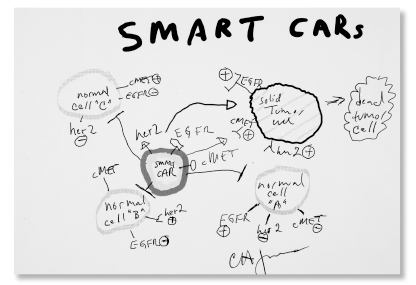 SMART CARs
normal
cell "C"
cMET ⊕
EGFR ⊖
her2
⊖
⊕
EGFR
solid
Tumor
cell
cMET
⊕
her2 ⊕
dead
tumor
cell
her2
EGFR
cMET
smart
CAR
cMET
normal
cell "B"
her2
⊕
EGFR ⊖
normal
cell
"A"
EGFR
⊕
her2
⊖
cMET
⊖